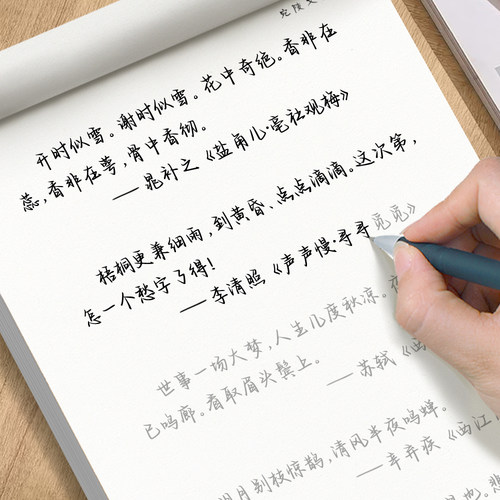 宛陵
开时似雪。谢时似雪。花中奇绝。香非在
蕊，香非在萼，骨中香彻。
——晁补之《盐角儿·亳社观梅》
梧桐更兼细雨，到黄昏、点点滴滴。这次第，
怎一个愁字了得！
——李清照《声声慢·寻寻觅觅》
世事一场大梦，人生几度秋凉。夜
已鸣廊。看取眉头鬓上。
——苏轼《西
明月别枝惊鹊，清风半夜鸣蝉。
——辛弃疾《西江